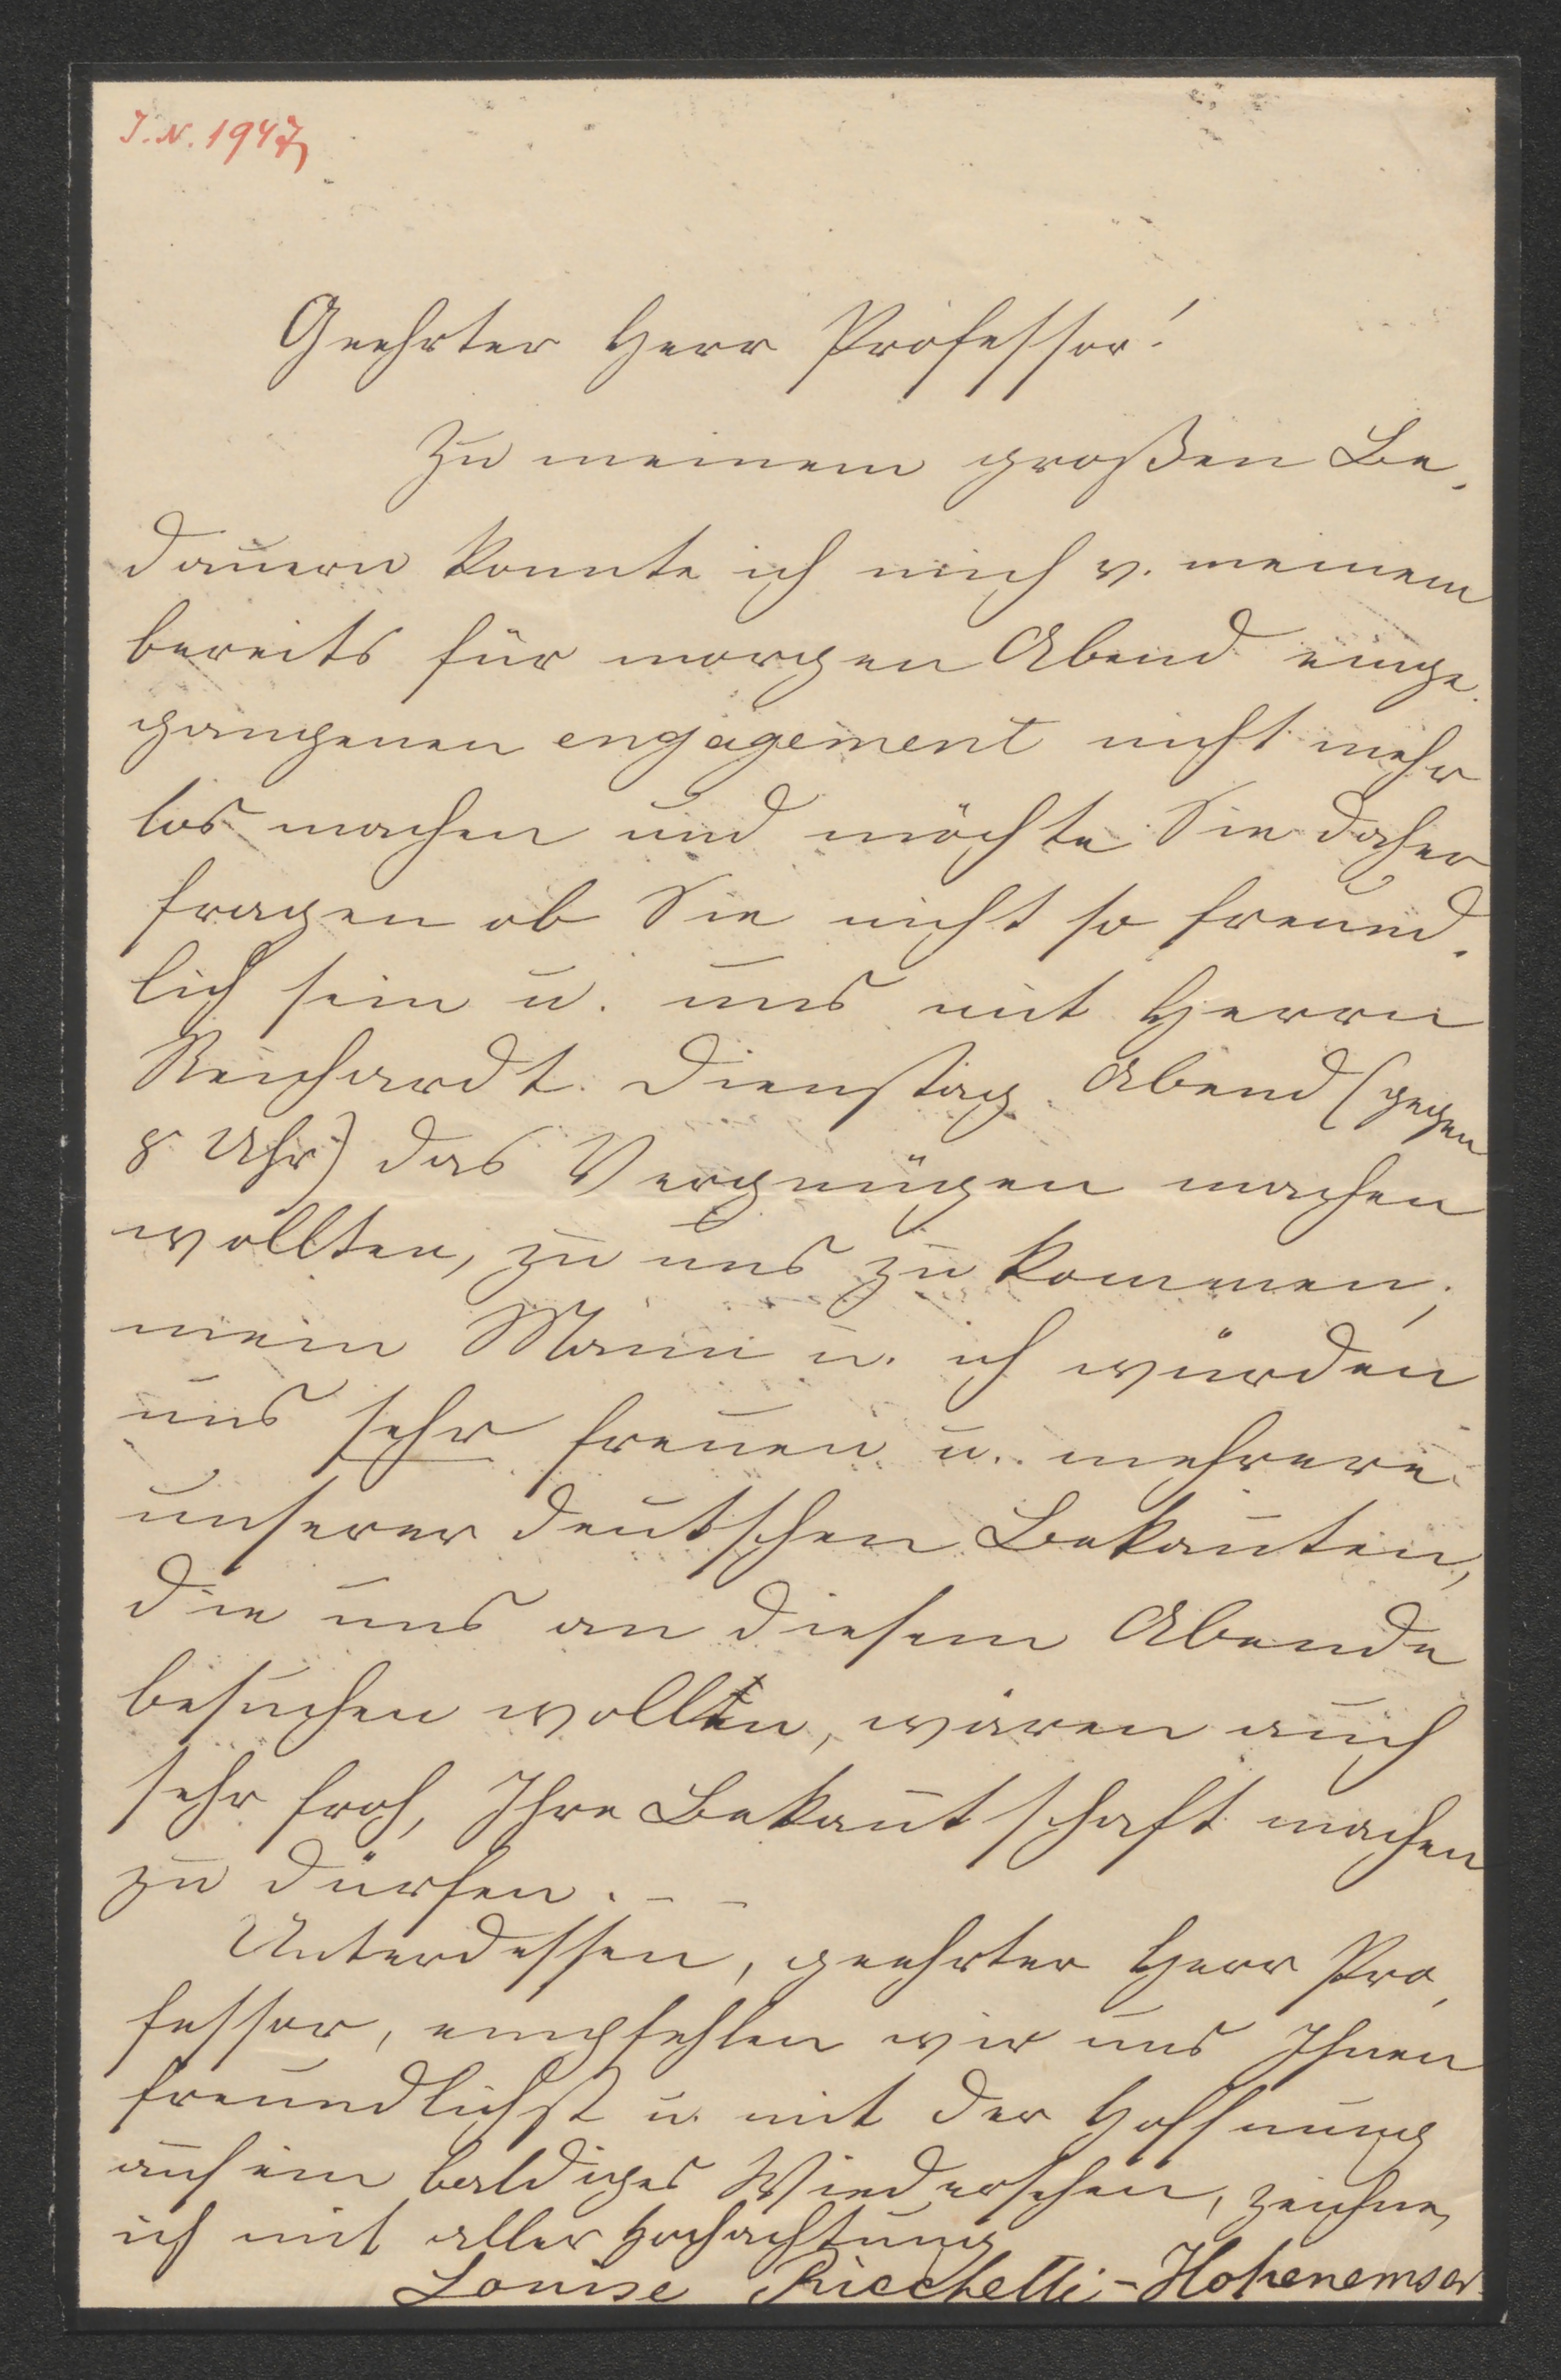 I. N. 1947
Geehrter Herr Professor!
Zu meinem großen Be-
dauern konnte ich mich v. meinem
bereits für morgen Abend einge-
gangenen engagement nicht mehr
los machen und möchte Sie daher
fragen ob Sie nicht so freund-
lich sein u. uns mit Herrn
Reichardt Dienstag Abend (gegen
8 Uhr) das Vergnügen machen
wollten, zu uns zu kommen;
mein Mann u. ich würden
uns sehr freuen u. mehrere
unserer deutschen Bekan̄ten,
die uns an diesem Abende
besuchen wollten, wären auch
sehr froh, Ihre Bekan̄tschaft machen
zu dürfen. – –
Unterdessen, geehrter Herr Pro-
fessor, empfehlen wir uns Ihnen
freundlichst u. mit der Hoffnung
auf ein baldiges Wiedersehen, zeichne
ich mit aller Hochachtung
Louise Ricchetti-Hohenemser